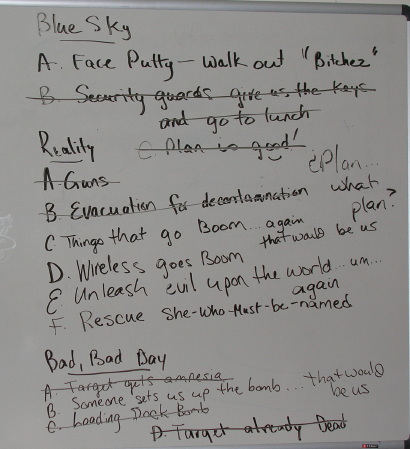 Blue Sky
A. Face Putty - walk out "Bitchez"
B. Security guards give us the keys
and go to lunch
C. Plan is good!
Reality
¿Plan...
A. Guns
what
B. Evacuation for decontamination
plan?
C Things that go Boom... again
that would be us
D. Wireless goes Boom
E. Unleash evil upon the world... um...
again
F. Rescue She-Who-Must-be-named
Bad, Bad Day
A. Target gets amnesia
B. Someone sets us up the bomb... that would
be us
C. Loading Dock Bomb
D. Target already Dead